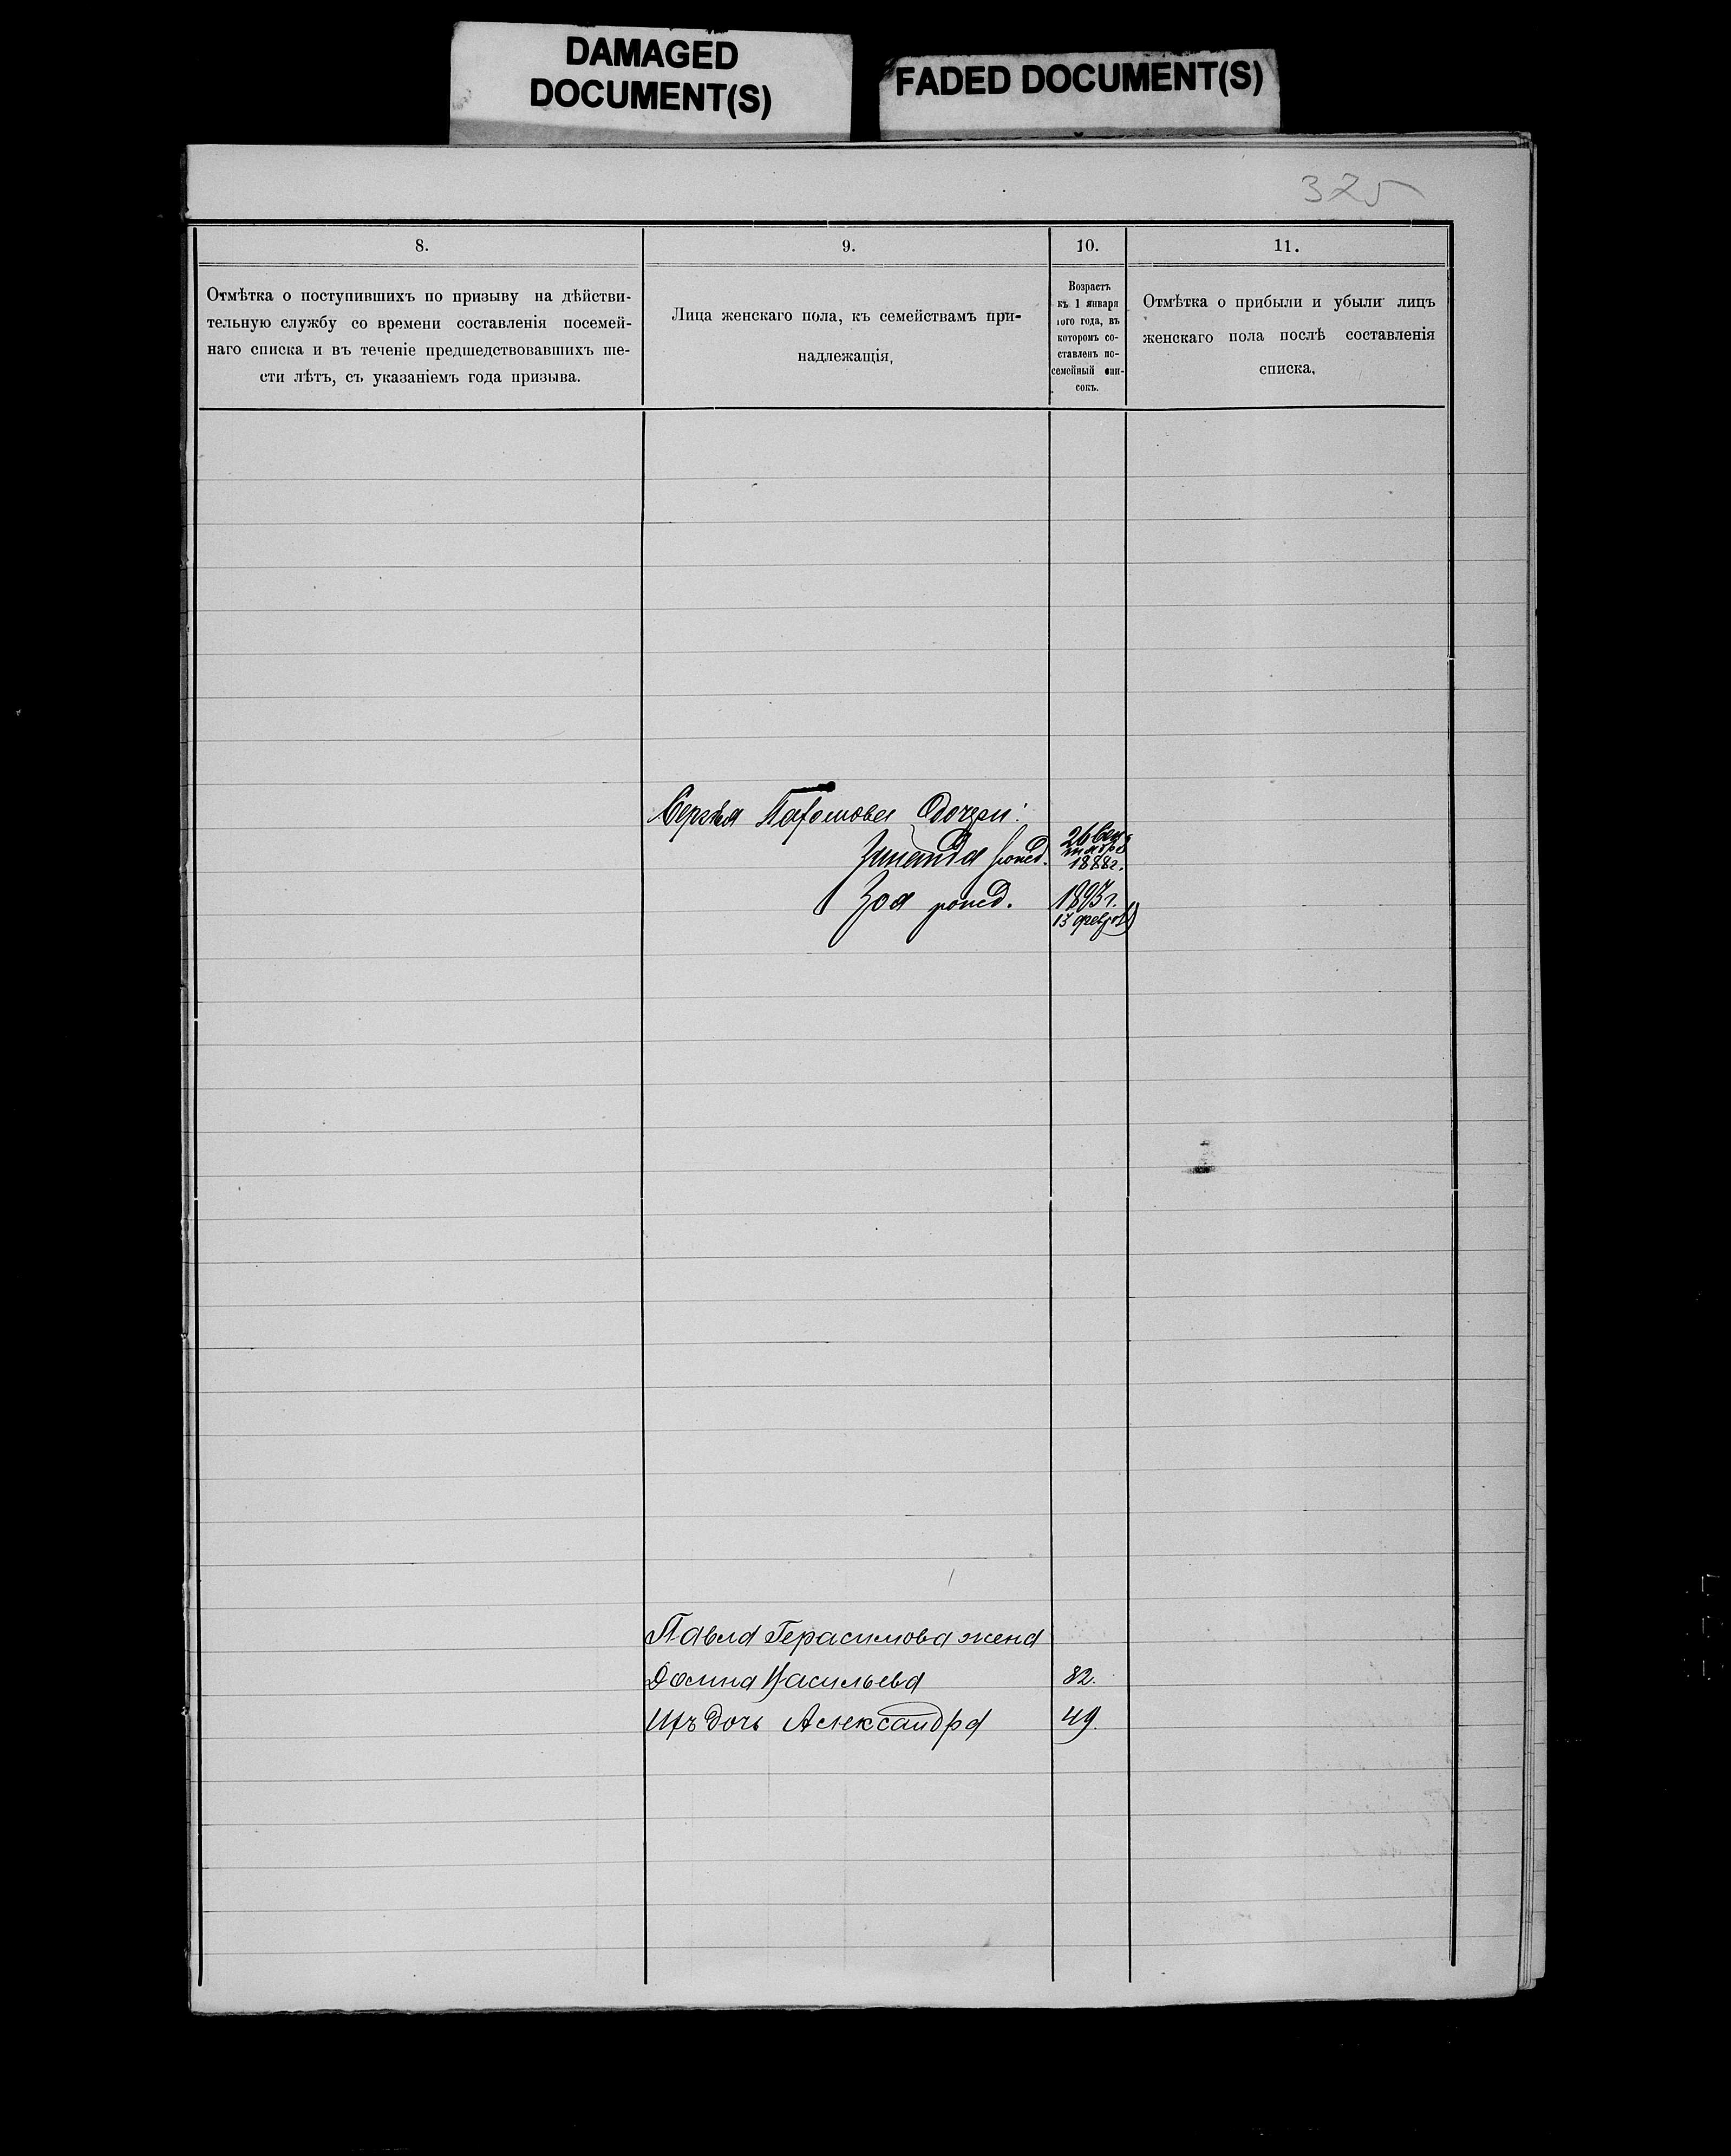 DAMAGED
DOCUMENT(S)
FADED DOCUMENT(S)
325
8.
9.
10.
11.
Отмѣтка о поступившихъ по призыву на дѣйстви-
тельную службу со времени составленія посемей-
наго списка и въ теченіе предшедствовавшихъ ше-
сти лѣтъ, съ указаніемъ года призыва.
Лица женскаго пола, къ семействамъ при-
надлежащія,
Возрастъ
къ 1 января
того года, въ
которомъ со-
ставленъ по-
семейный спи-
сокъ.
Отмѣтка о прибыли и убыли лицъ
женскаго пола послѣ составленія
списка.
Сергѣя Пахомова дочери:
рожд. 26 Сен-
тября
1888 г.
Зоя рожд. 1893 г.
13 февр.
Павла Герасимова жена
Домна Васильева 82.
Ихъ дочь Александра 49.